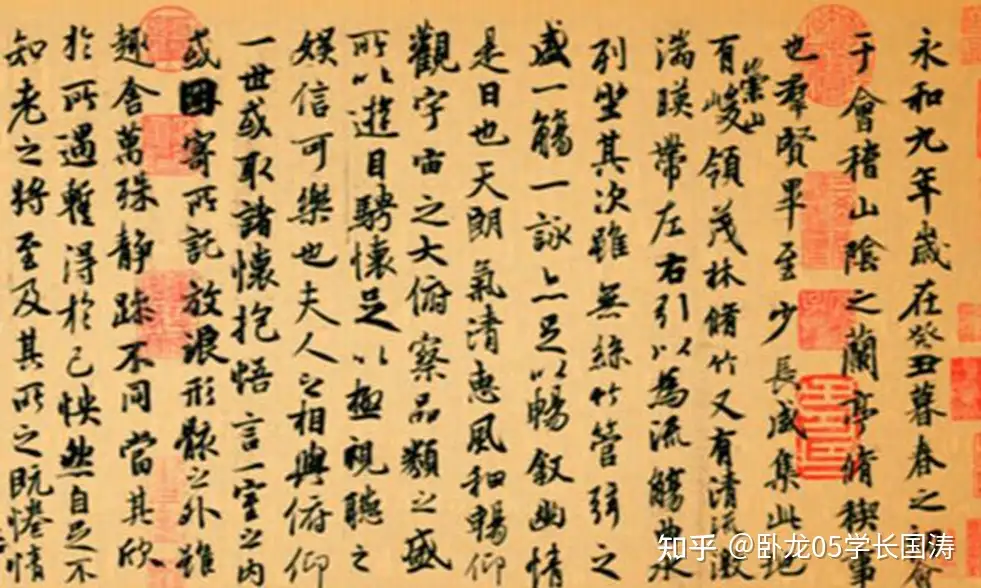 永和九年歲在癸丑暮春之初會
于會稽山陰之蘭亭脩稧事
也羣賢畢至少長咸集此地
有崇山峻領茂林脩竹又有清流激
湍暎帶左右引以為流觴曲水
列坐其次雖無絲竹管弦之
盛一觴一詠亦足以暢敘幽情
是日也天朗氣清惠風和暢仰
觀宇宙之大俯察品類之盛
所以遊目騁懷足以極視聽之
娛信可樂也夫人之相與俯仰
一世或取諸懷抱悟言一室之內
或因寄所託放浪形骸之外雖
趣舍萬殊靜躁不同當其欣
於所遇暫得於己怏然自足不
知老之將至及其所之既惓情
知乎 @卧龙05学长国涛